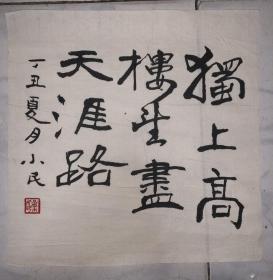 獨上高
樓望盡
天涯路
丁丑夏月小民